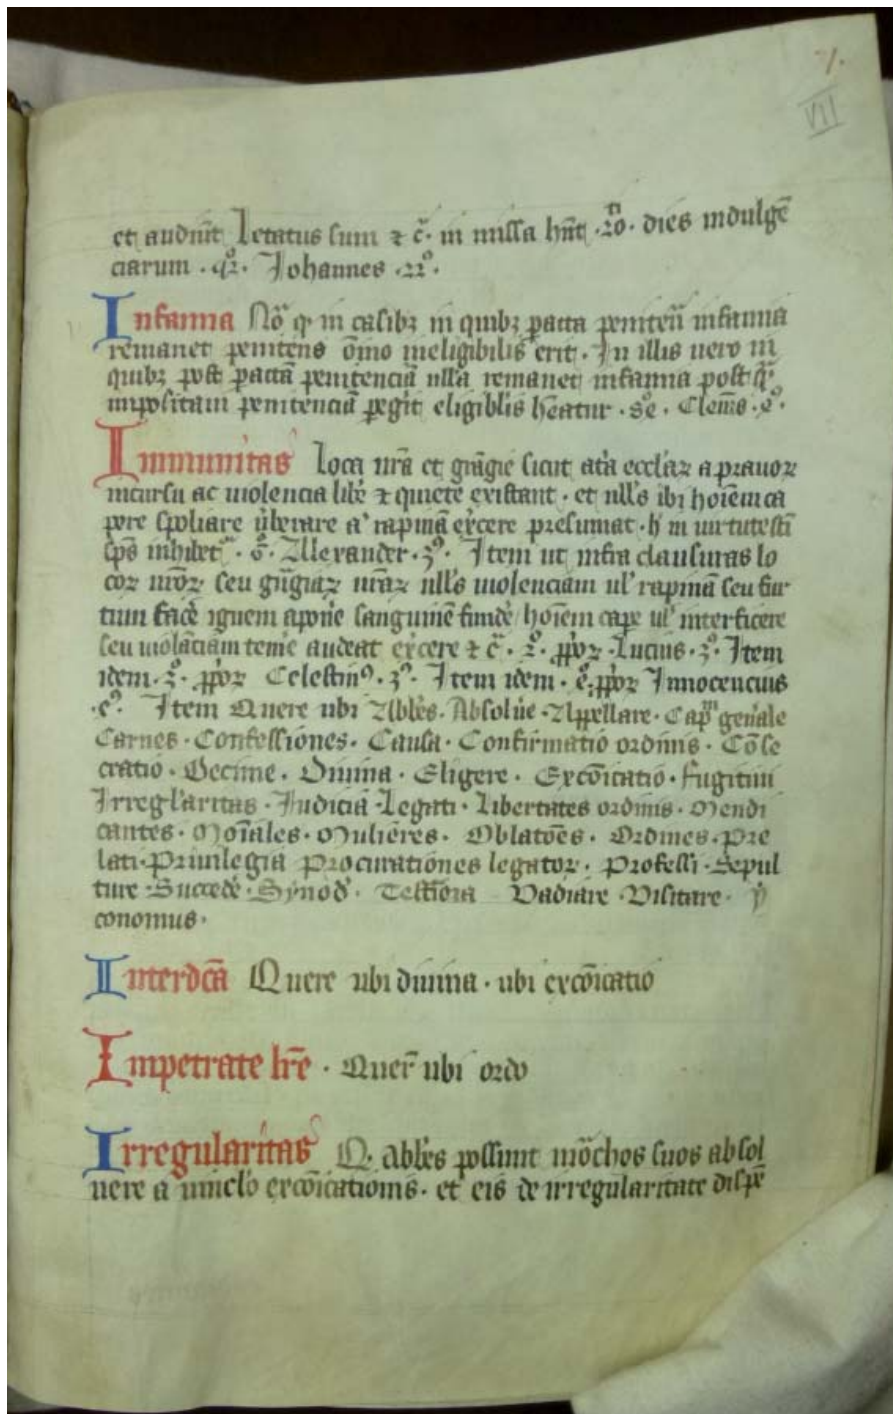 7.
VII
et audiūt Letatus sum ⁊ c̄. in missa hn̄t .xx. dies indulgē
ciarum . Johannes .22º.
Infamia Nō q̨ in casibꝫ in quibꝫ ꝑacta peniten̄ infamia
remanet penitens ōīno ineligibilis erit. In illis uero in
quibꝫ post ꝑactā penitenciā nlla remanet infamia postq̄
impositam penitenciā ꝑegit eligibilis heatur. Clemēs
Immunitas Loca nrā et grāgie sicut atria ecclāꝝ a prauoꝝ
incursu ac uiolencia libē ⁊ quiete existant. et nllꝰs ibi hoīem ca
pere spoliare uerberare aᵗ rapinā exercere presumat. h in uirtute sc̄i
sp̄s inhibetʳ. Allexander .3º. Item ut infra clausuras lo
coꝝ nr̄oꝝ seu grangiaꝝ nr̄aꝝ nllꝰs uiolenciam ul' rapinā seu fur
tum facē ignem aponē sanguinē fundē hoīem capē ul' interficere
seu uiolāciam temē audeat exercere ⁊ c̄. Lucius .3º. Item
idem. Celestinꝰ .3º. Item idem. Innocencius
Item Quere ubi Abbēs. Absolūe. Appellare. Capᵐ genāle
Carnes. Confessiones. Causa. Confirmatio ordinis. Cōse
cratio. Decime. Diuina. Eligere. Excōicatio. Fugitiui
Irreglāritas. Iudicia Legati. Libertates ordinis. Mendi
cantes. Moīales. Mulieres. Oblatōēs. Ordines. Pre
lati. Priuilegia Procurationes legatoꝝ. Professi. Sepul
ture. Succedē. Synod'. Testiōia Vadiare. Visitare. Y
conomus.
Interdc̄a Quere ubi diuina. ubi excōicatio
Impetrate lr̄e. Quer̄ ubi ordo
Irregularitas Q. Abbēs possunt mōchos suos absol
uere a uinclō excōicationis. et eis de irregularitate dispē